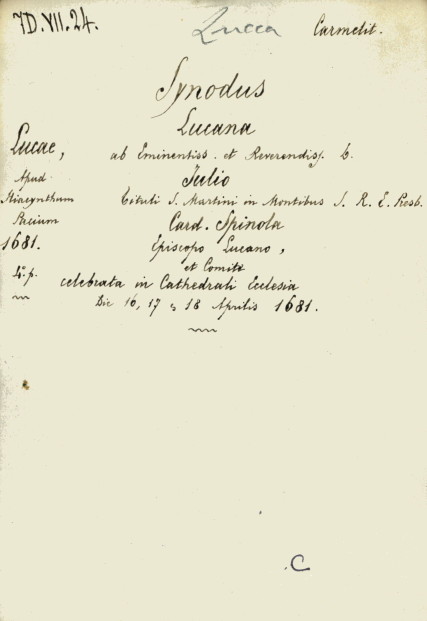 7D.VII.24. Lucca Carmelit.
Synodus
Lucana
Lucae, ab Eminentiss. et Reverendiss. D.
Apud Julio
Hiacynthum Tituli S. Martini in Montibus S. R. E. Presb.
Pacium Card. Spinola
1681. Episcopo Lucano,
et Comite
4º. p. celebrata in Cathedrali Ecclesia
Die 16, 17 & 18 Aprilis 1681.
.C